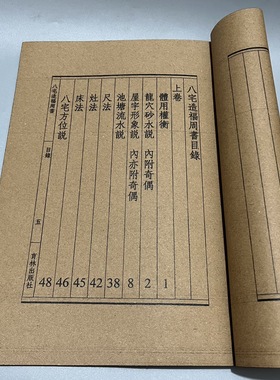 八宅造福周書目錄
上卷
體用權衡 1
龍穴砂水說 內附奇偶 2
屋宇形象說 內亦附奇偶 8
池塘流水說 38
尺法 42
灶法 45
床法 46
八宅方位說 48
八宅造福周書 目錄 五 育林出版社